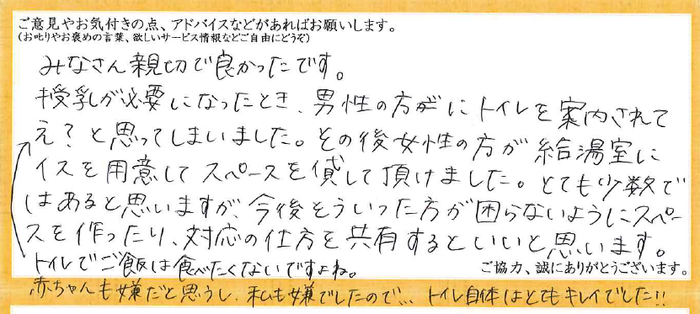 ご意見やお気付きの点、アドバイスなどがあればお願いします。
(お叱りやお褒めの言葉、欲しいサービス情報などご自由にどうぞ)
みなさん親切で良かったです。
授乳が必要になったとき、男性の方がにトイレを案内されて
え？と思ってしまいました。その後女性の方が給湯室に
イスを用意してスペースを貸して頂けました。とても少数で
はあると思いますが、今後そういった方が困らないようにスペー
スを作ったり、対応の仕方を共有するといいと思います。
トイレでご飯は食べたくないですよね。
ご協力、誠にありがとうございます。
赤ちゃんも嫌だと思うし、私も嫌でしたので… トイレ自体はとてもキレイでした!!